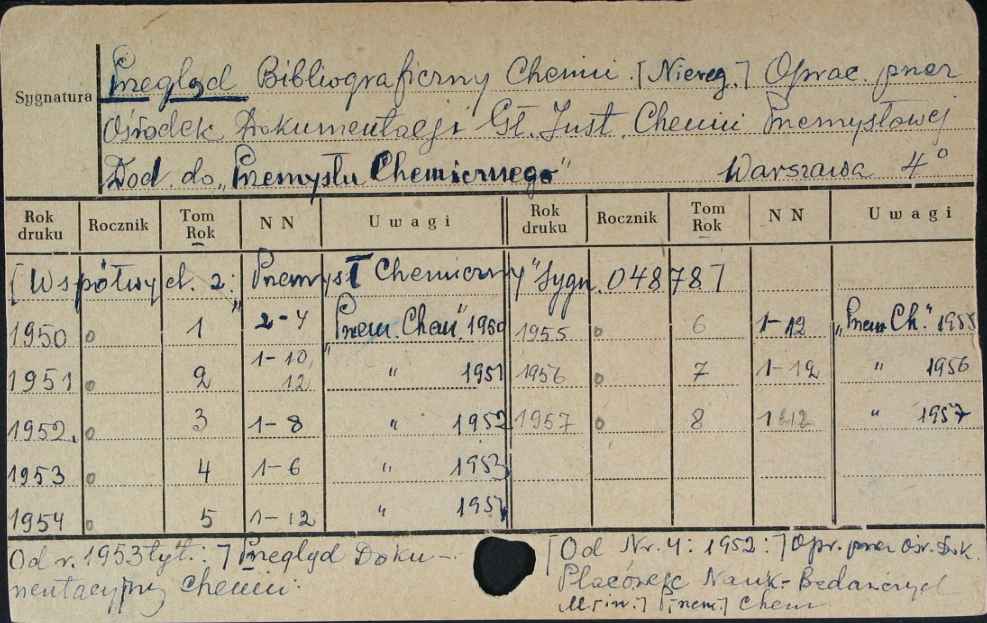 Sygnatura
Przegląd Bibliograficzny Chemii. [Niereg.] Oprac. przez
Ośrodek Dokumentacji Gł. Inst. Chemii Przemysłowej
Dod. do „Przemysłu Chemicznego" Warszawa 4°
Rok druku Rocznik Tom Rok N N Uwagi Rok druku Rocznik Tom Rok N N Uwagi
[Współwyd. z: „Przemysł Chemiczny" Sygn. 048787]
1950 o 1 2-4 „Przem. Chem." 1950 1955 o 6 1-12 „Przem. Ch." 1955
1951 o 2 1-10, 12 " 1951 1956 o 7 1-12 " 1956
1952. o 3 1-8 " 1952 1957 o 8 1-12 " 1957
1953 o 4 1-6 " 1953
1954 o 5 1-12 "
Od r. 1953 tyt.: ] Przegląd Doku-
mentacyjny Chemii.
[Od Nr. 4: 1952: ] Opr. przez Ośr. Dok.
Placówek Nauk.-Badawczych
Min. Przem. Chem